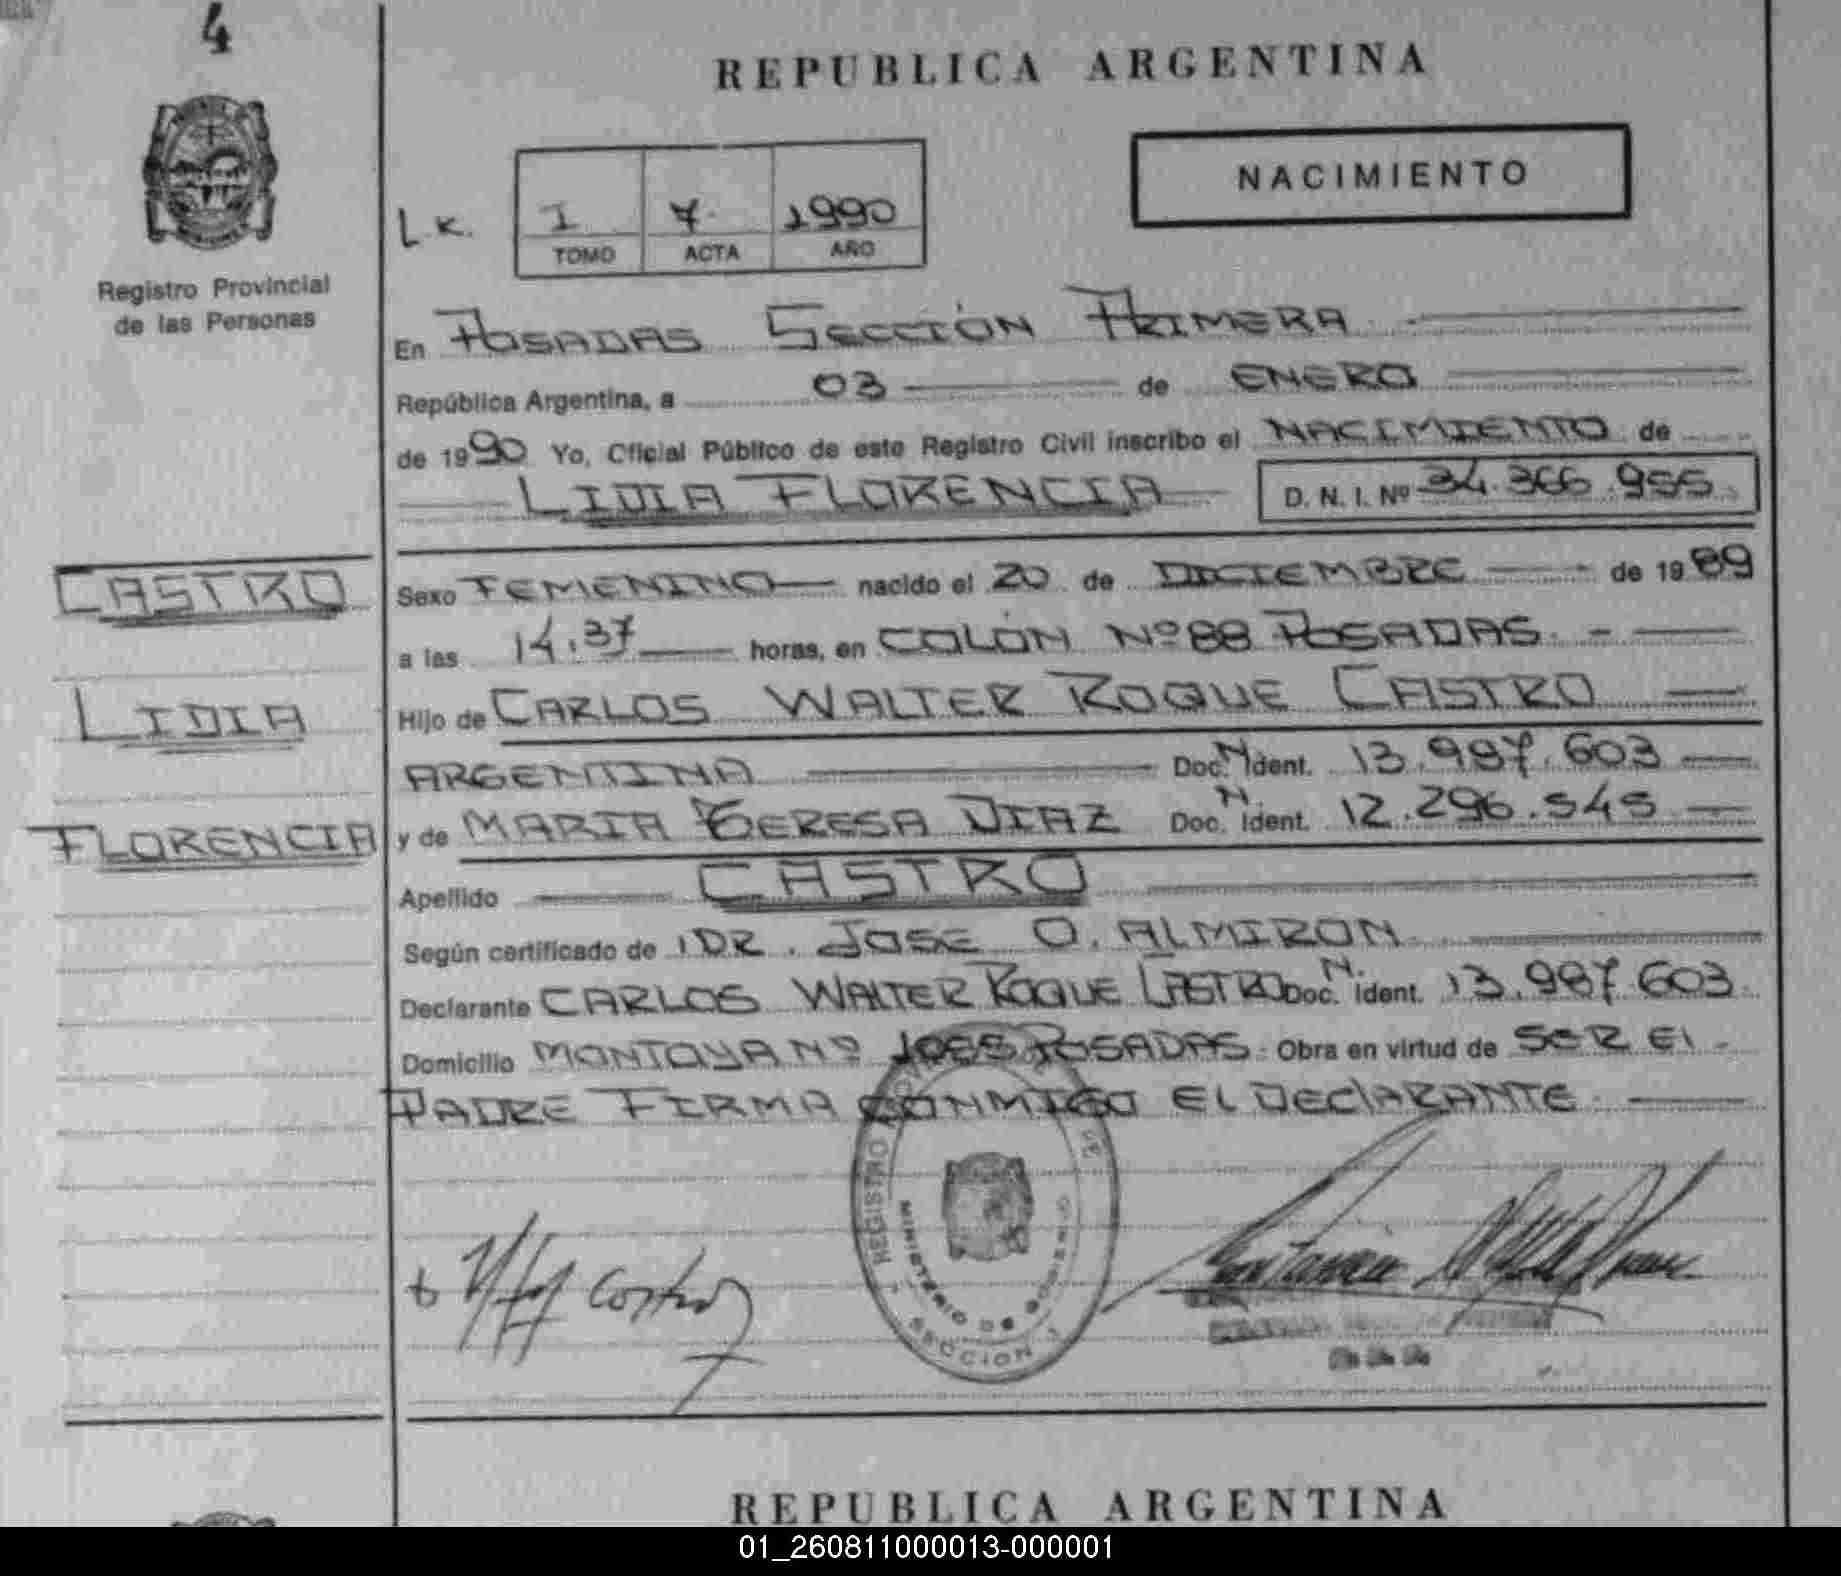 4
REPUBLICA ARGENTINA
NACIMIENTO
L.K.
I 7 1990
TOMO ACTA AÑO
Registro Provincial
de las Personas
En POSADAS SECCIÓN PRIMERA
República Argentina, a 03 de ENERO
de 1990 Yo, Oficial Público de este Registro Civil inscribo el NACIMIENTO de
LIDIA FLORENCIA D. N. I. Nº 34.366.955
CASTRO
LIDIA
FLORENCIA
Sexo FEMENINO nacido el 20 de DICIEMBRE de 1989
a las 14.37 horas, en COLÓN Nº 88 POSADAS.
Hijo de CARLOS WALTER ROQUE CASTRO
ARGENTINA Doc. N. Ident. 13.987.603
y de MARIA TERESA DIAZ Doc. N. Ident. 12.296.545
Apellido CASTRO
Según certificado de DR. JOSE O. ALMIRON
Declarante CARLOS WALTER ROQUE CASTRO Doc. N. Ident. 13.987.603
Domicilio MONTOYA Nº POSADAS. Obra en virtud de SER El
PADRE FIRMA CONMIGO EL DEClARANTE
REGISTRO
MINISTERIO DE GOBIERNO
SECCION 1
Castro
REPUBLICA ARGENTINA
01_260811000013-000001